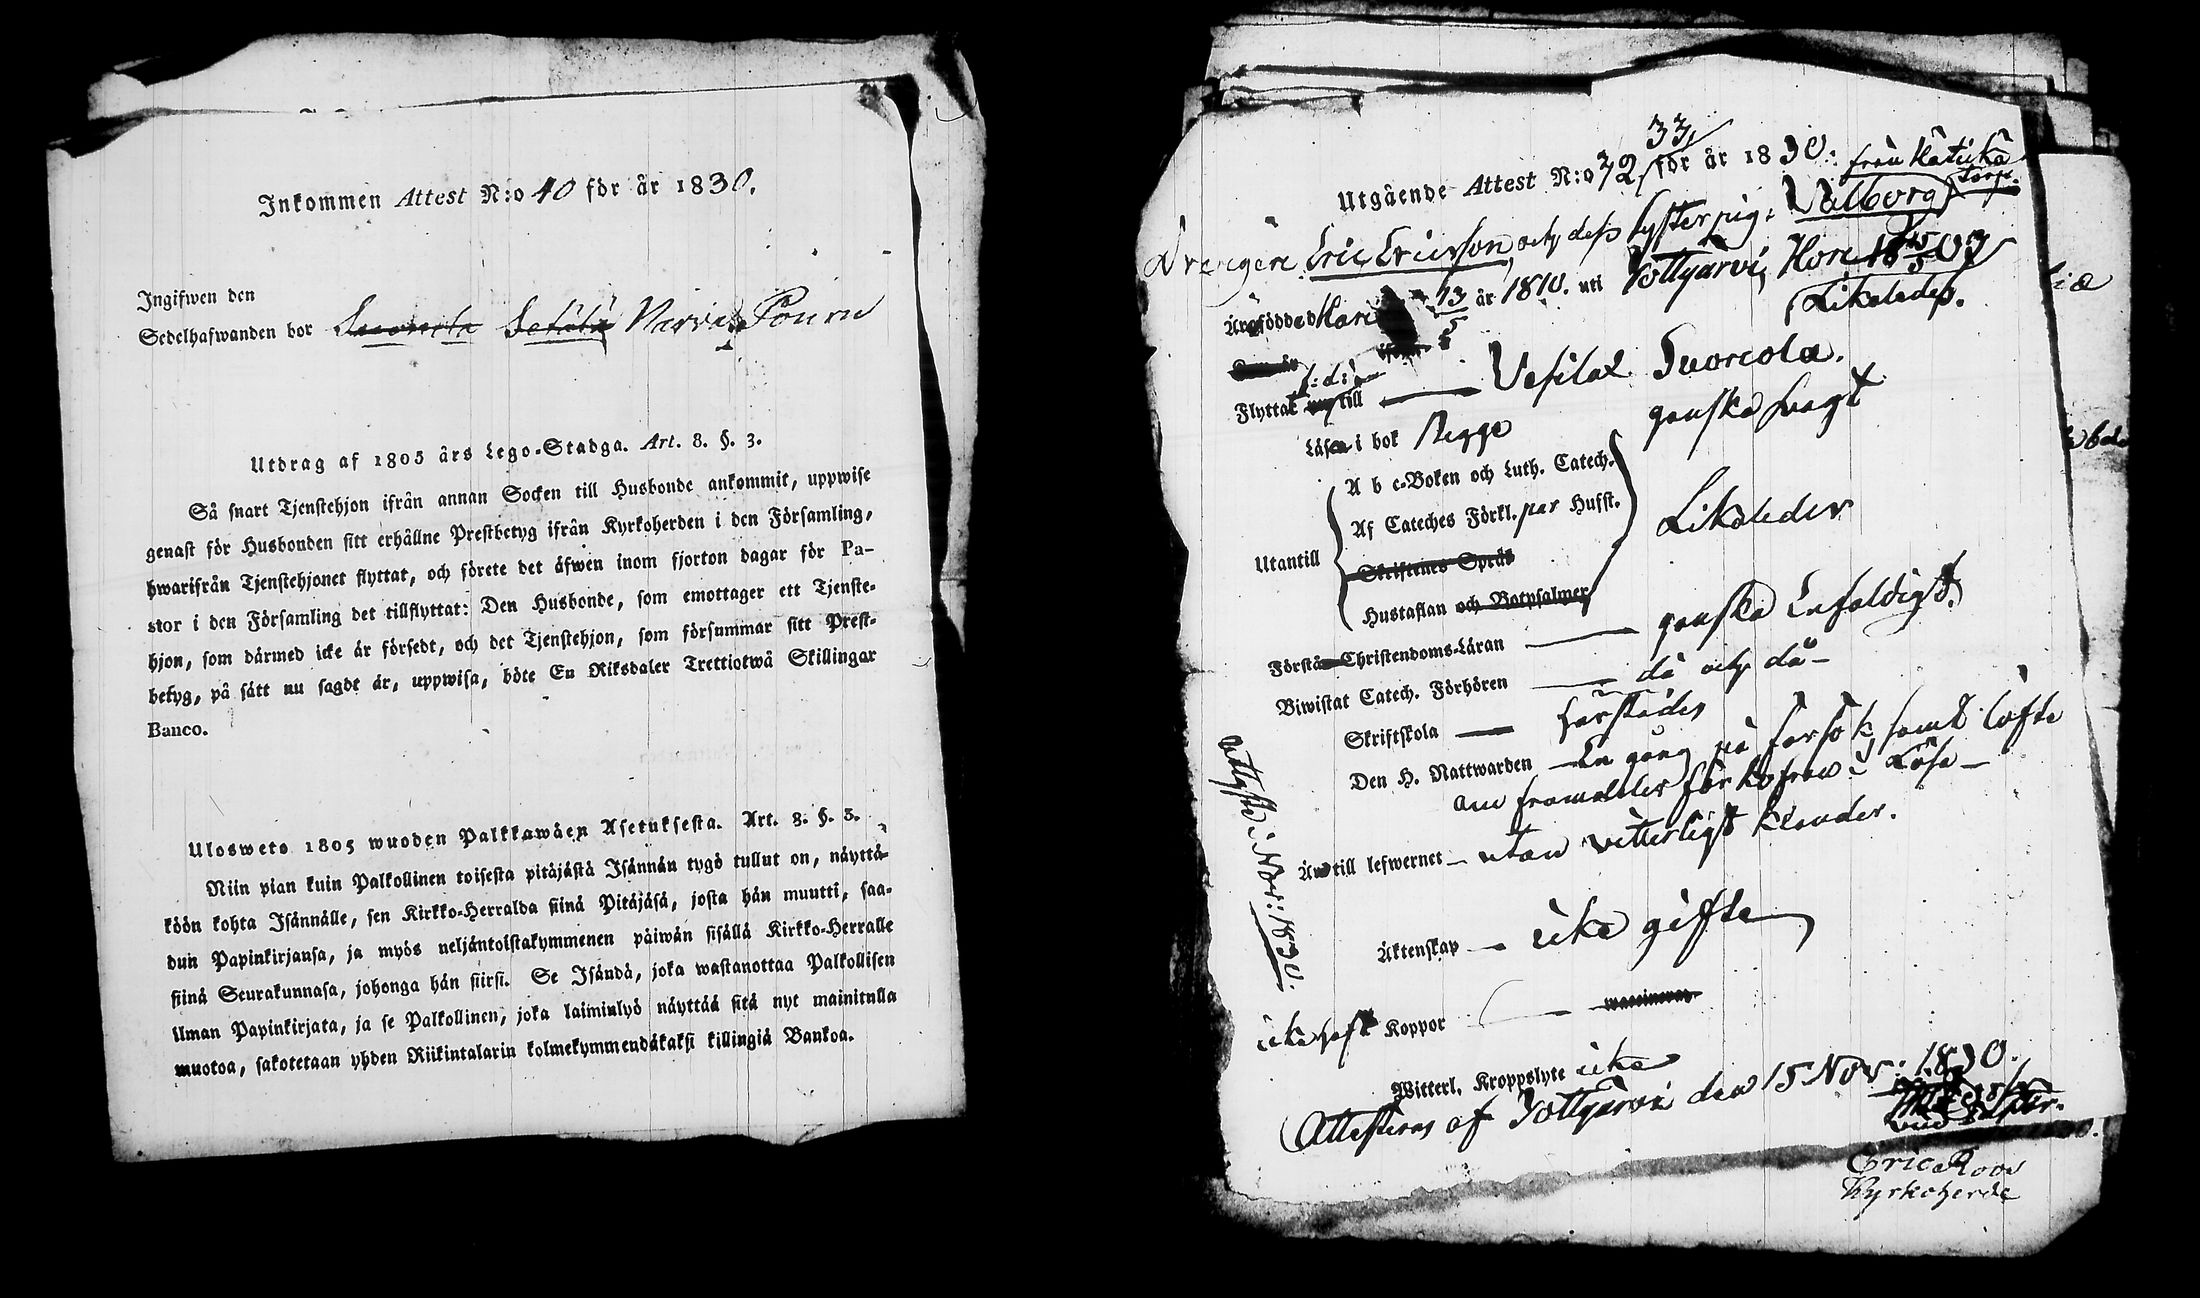 Inkommen Attest N:o 40 för år 1830.
Ingifwen den
Sedelhafwanden bor Narva
Utdrag af 1805 års Lego-Stadga. Art. 8. §. 3.
Så snart Tjenstehjon ifrån annan Socken till Husbonde ankommit, uppwise
genast för Husbonden sitt erhållne Prestbetyg ifrån Kyrkoherden i den Församling,
hwarifrån Tjenstehjonet flyttat, och förete det äfwen inom fjorton dagar för Pa-
stor i den Församling det tillflyttat: Den Husbonde, som emottager ett Tjenste-
hjon, som därmed icke är försedt, och det Tjenstehjon, som försummar sitt Prest-
betyg, på sätt nu sagdt är, uppwisa, böte En Riksdaler Trettiotwå Skillingar
Banco.
Uloswето 1805 wuoden Palkkawäen Asetuksesta. Art. 8. §. 3.
Niin pian kuin Palkollinen toisesta pitäjästä Isännän tygö tullut on, näyttä-
köön kohta Isännälle, sen Kirkko-Herralda siinä Pitäjäsä, josta hän muutti, saa-
dun Papinkirjansa, ja myös neljäntoistakymmenen päiwän sisällä Kirkko-Herralle
siinä Seurakunnasa, johonga hän siirsi. Se Isändä, joka wastanottaa Palkollisen
ilman Papinkirjata, ja se Palkollinen, joka laiminlyö näyttää sitä nyt mainitulla
muotoa, sakotetaan yhden Riikintalarin kolmekymmendäkaksi killingiä Bankoa.
33
Utgående Attest N:o 32 för år 1830. från
torp.
Drengen Eric Ericsson och dess Syster pig. Valborg
födde 13/5 år 1810. uti Tottijärvi 1803
Likaledes.
Flyttat till Vesilax Suoniola.
Läsa i bok begge ganska svagt
A b c-Boken och Luth. Catech.
Af Cateches Förkl. par Hufst.
Likaledes
Utantill
Skriftenes Språk
Hustaflan och Botpsalmer
Förstå Christendoms-Läran ganska Enfaldigt.
Biwistat Catech. Förhören då och då
Skriftskola
Den H. Nattwarden En gång på försök samt löfte
om framdeles förkofran i Läsa
Än till lefwernet utan vitterligt klander.
Äktenskap icke gifte
icke haft Koppor
Witterl. Kroppslyte icke
Attesteras af Tottijärvi den 15 Nov: 1830.
Eric Roos
Kyrkoherde
utflytta i Nov: 1830.